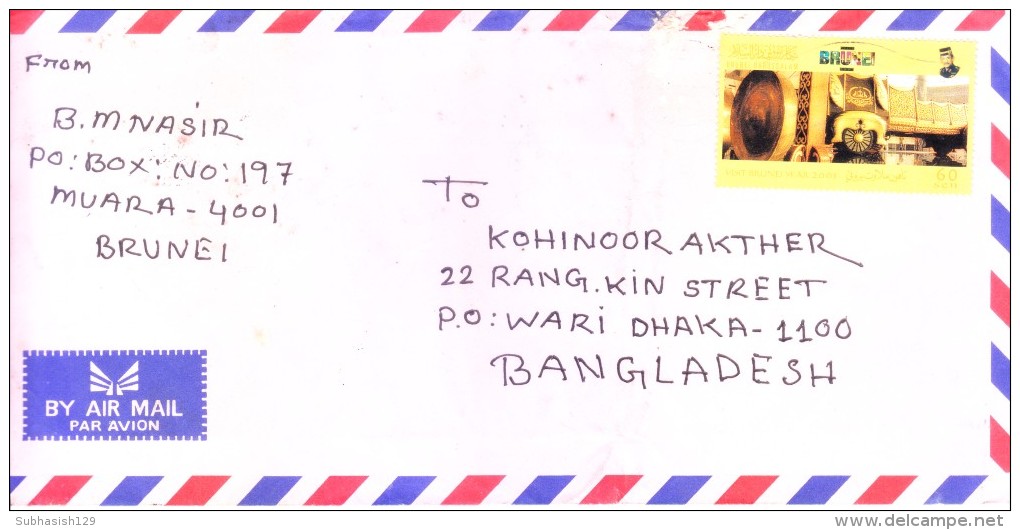 From
B. M NASIR
PO: BOX: NO: 197
MUARA - 4001
BRUNEI
TO
KOHINOOR AKTHER
22 RANG. KIN STREET
P.O: WARI DHAKA - 1100
BANGLADESH
BRUNEI
VISIT BRUNEI YEAR 2001
60
SEN
BY AIR MAIL
PAR AVION
Subhasish129
www.delcampe.net